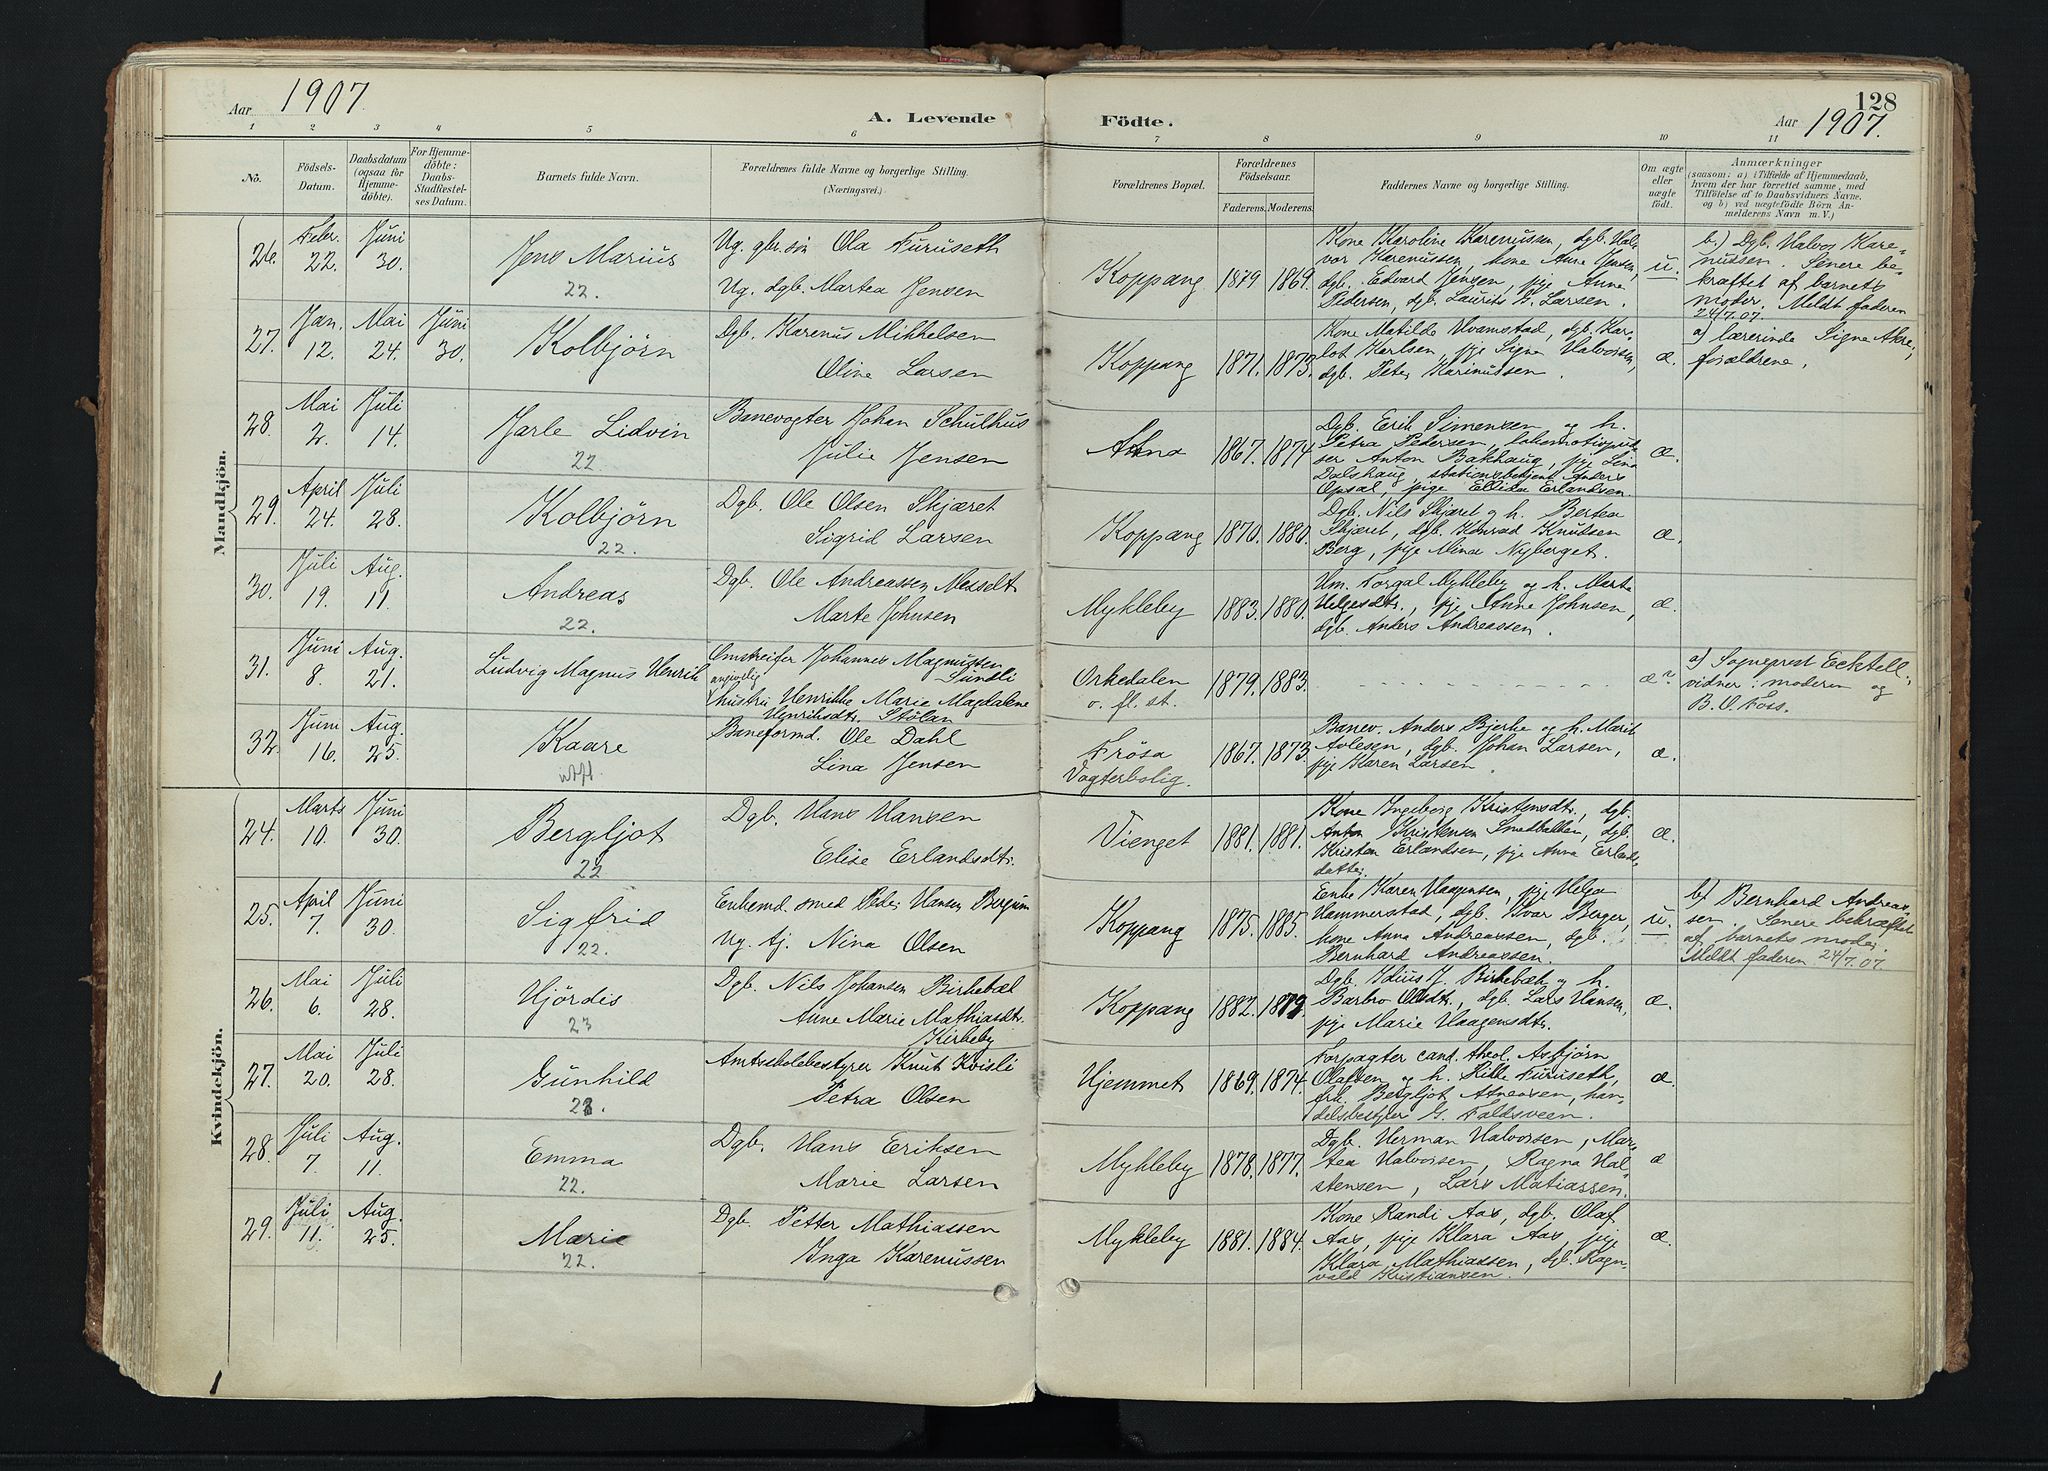 Aar 1907
A. Levende
Födte.
128
Aar 1907.
1 2 3 4 5 6 7 8 9 10 11
No.
Födsels-
Datum.
Daabsdatum
(ogsaa for
Hjemme-
döbte).
For Hjemme-
döbte:
Daabs-
Stadfæstel-
ses Datum.
Barnets fulde Navn.
Forældrenes fulde Navne og borgerlige Stilling.
(Næringsvei.)
Forældrenes Bopæl.
Forældrenes
Födselsaar.
Faderens. Moderens.
Faddernes Navne og borgerlige Stilling.
Om ægte
eller
uægte
födt.
Anmærkninger
(saasom: a) i Tilfælde af Hjemmedaab,
hvem der har forrettet samme, med
Tilföielse af to Daabsvidners Navne,
og b) ved uægtefödte Börn An-
melderens Navn m. V.)
Mandkjön.
26. Febr. 22. Juni 30.
Jens Marius
22.
Ug. gbr. sön Ola Furuseth
Ug. dgb. Martea Jensen
Koppang 1879 1869.
Kone Karoline Karenussen, dgb. Hal-
vor Karenussen, kone Anne Jensen,
dgb. Edvard Jensen, pije Anna
Pedersen, dgb. Laurits G. Larsen.
u.
b.) Dgb. Halvor Kare-
nussen. Senere be-
kræftet af barnets
moder. Meldt faderen
24/7.07.
27. Jan. 12. Mai 24. Juni 30.
Kolbjörn
Dgb. Karenus Mikkelsen
Oline Larsen
Koppang 1871. 1873.
Kone Matilde Hvamstad, dgb. Kar-
lot Karlsen, pije Signe Halvorsen,
dgb. Peter Karinussen.
æ.
a) lærerinde Signe Akre,
forældrene.
28. Mai 2. Juli 14.
Jarle Lidvin
22.
Banevogter Johan Schulhus
Julie Jensen
Atna 1867. 1874
Dgb. Erik Simensen og h.
Petra Pedersen, lokomotivpud-
ser Anton Bakhaug, pije Lina
Dalshaug, stationsbetjent Anders
Opsal, pije Ellisa Erlandsen.
æ.
29. April 24. Juli 28.
Kolbjörn
22.
Dgb. Ole Olsen Skjæret
Sigrid Larsen
Koppang 1870. 1880.
Dgb. Nils Skjæret og h. Bertea
Skjæret, dgb. Konrad Knudsen
Berg, pije Mina Nyberget.
æ.
30. Juli 19. Aug. 11.
Andreas
22.
Dgb. Ole Andreassen Messelt
Marte Johnsen
Mykleby 1883. 1880.
Um. Torgal Mykleby og h. Marte
Helgesdtr., pije Anne Johnsen,
dgb. Anders Andreassen.
æ.
31. Juni 8. Aug. 21.
Ludvig Magnus Henrik
Omstreifer Johannes Magnussen
Sundli
angivelig
hustru Henrikke Marie Magdalene
Henriksdtr. Stölan
Orkedalen
o. fl. st.
1879. 1883.
æ?
a) Sogneprest Ecktell.;
vidner: moderen og
B. O. Foss.
32. Juni 16. Aug. 25.
Kaare
utfl.
Baneformd. Ole Dahl
Lina Jensen
Frösa
Vogterbolig.
1867. 1873.
Banev. Anders Bjerke og h. Marit
Avlesen, dgb. Johan Larsen,
pije Karen Larsen.
æ.
Kvindekjön.
24. Marts 10. Juni 30.
Bergljot
22
Dgb. Hans Hansen
Elise Erlandsdtr.
Vienget 1881. 1881.
Kone Ingeborg Kristensdtr., dgb.
Anton Kristensen Smedbakken, dgb.
Kristen Erlandsen, pije Anna Erlands-
datter.
æ.
25. April 7. Juni 30.
Sigfrid
22.
Enkemd. smed Peder Hansen Bergum
Ug. tj. Nina Olsen
Koppang 1875. 1885.
Enke Karen Haagensen, pije Helga
Hammerstad, dgb. Ivar Berger,
kone Anna Andreassen, dgb.
Bernhard Andreassen.
u.
b) Bernhard Andreas-
sen. Senere bekræftet
af barnets moder.
Meldt faderen 24/7.07.
26. Mai 6. Juli 28.
Hjördis
23
Dgb. Nils Johansen Birkebæk
Anne Marie Mathiasdtr.
Kirkeby
Koppang 1882. 1879.
Dgb. Idius J. Birkebæk og h.
Barbro Olsdtr., dgb. Lars Hansen,
pije Marie Haagensdtr.
æ.
27. Mai 20. Juli 28.
Gunhild
Amtsskolebestyrer Knut Kvisli
Petra Olsen
Hjemmet 1869. 1874.
Forpagter cand. theol. Asbjörn
Olafsen og h. Rikke Furuseth,
frk. Bergljot Atneosen, han-
delsbestyrer G. Faldsveen.
æ.
28. Juli 7. Aug. 11.
Emma
22.
Dgb. Hans Eriksen
Marie Larsen
Mykleby 1878. 1877.
Dgb. Herman Halvorsen, Mar-
tea Halvorsen, Ragna Hal-
stensen, Lars Matiassen.
æ
29. Juli 11. Aug. 25.
Marie
22.
Dgb. Petter Mathiassen
Inga Karenussen
Mykleby 1881. 1884.
Kone Randi Aas, dgb. Olaf
Aas, pije Klara Aas, pije
Klara Mathiassen, dgb. Ragn-
vald Kristiansen.
æ.